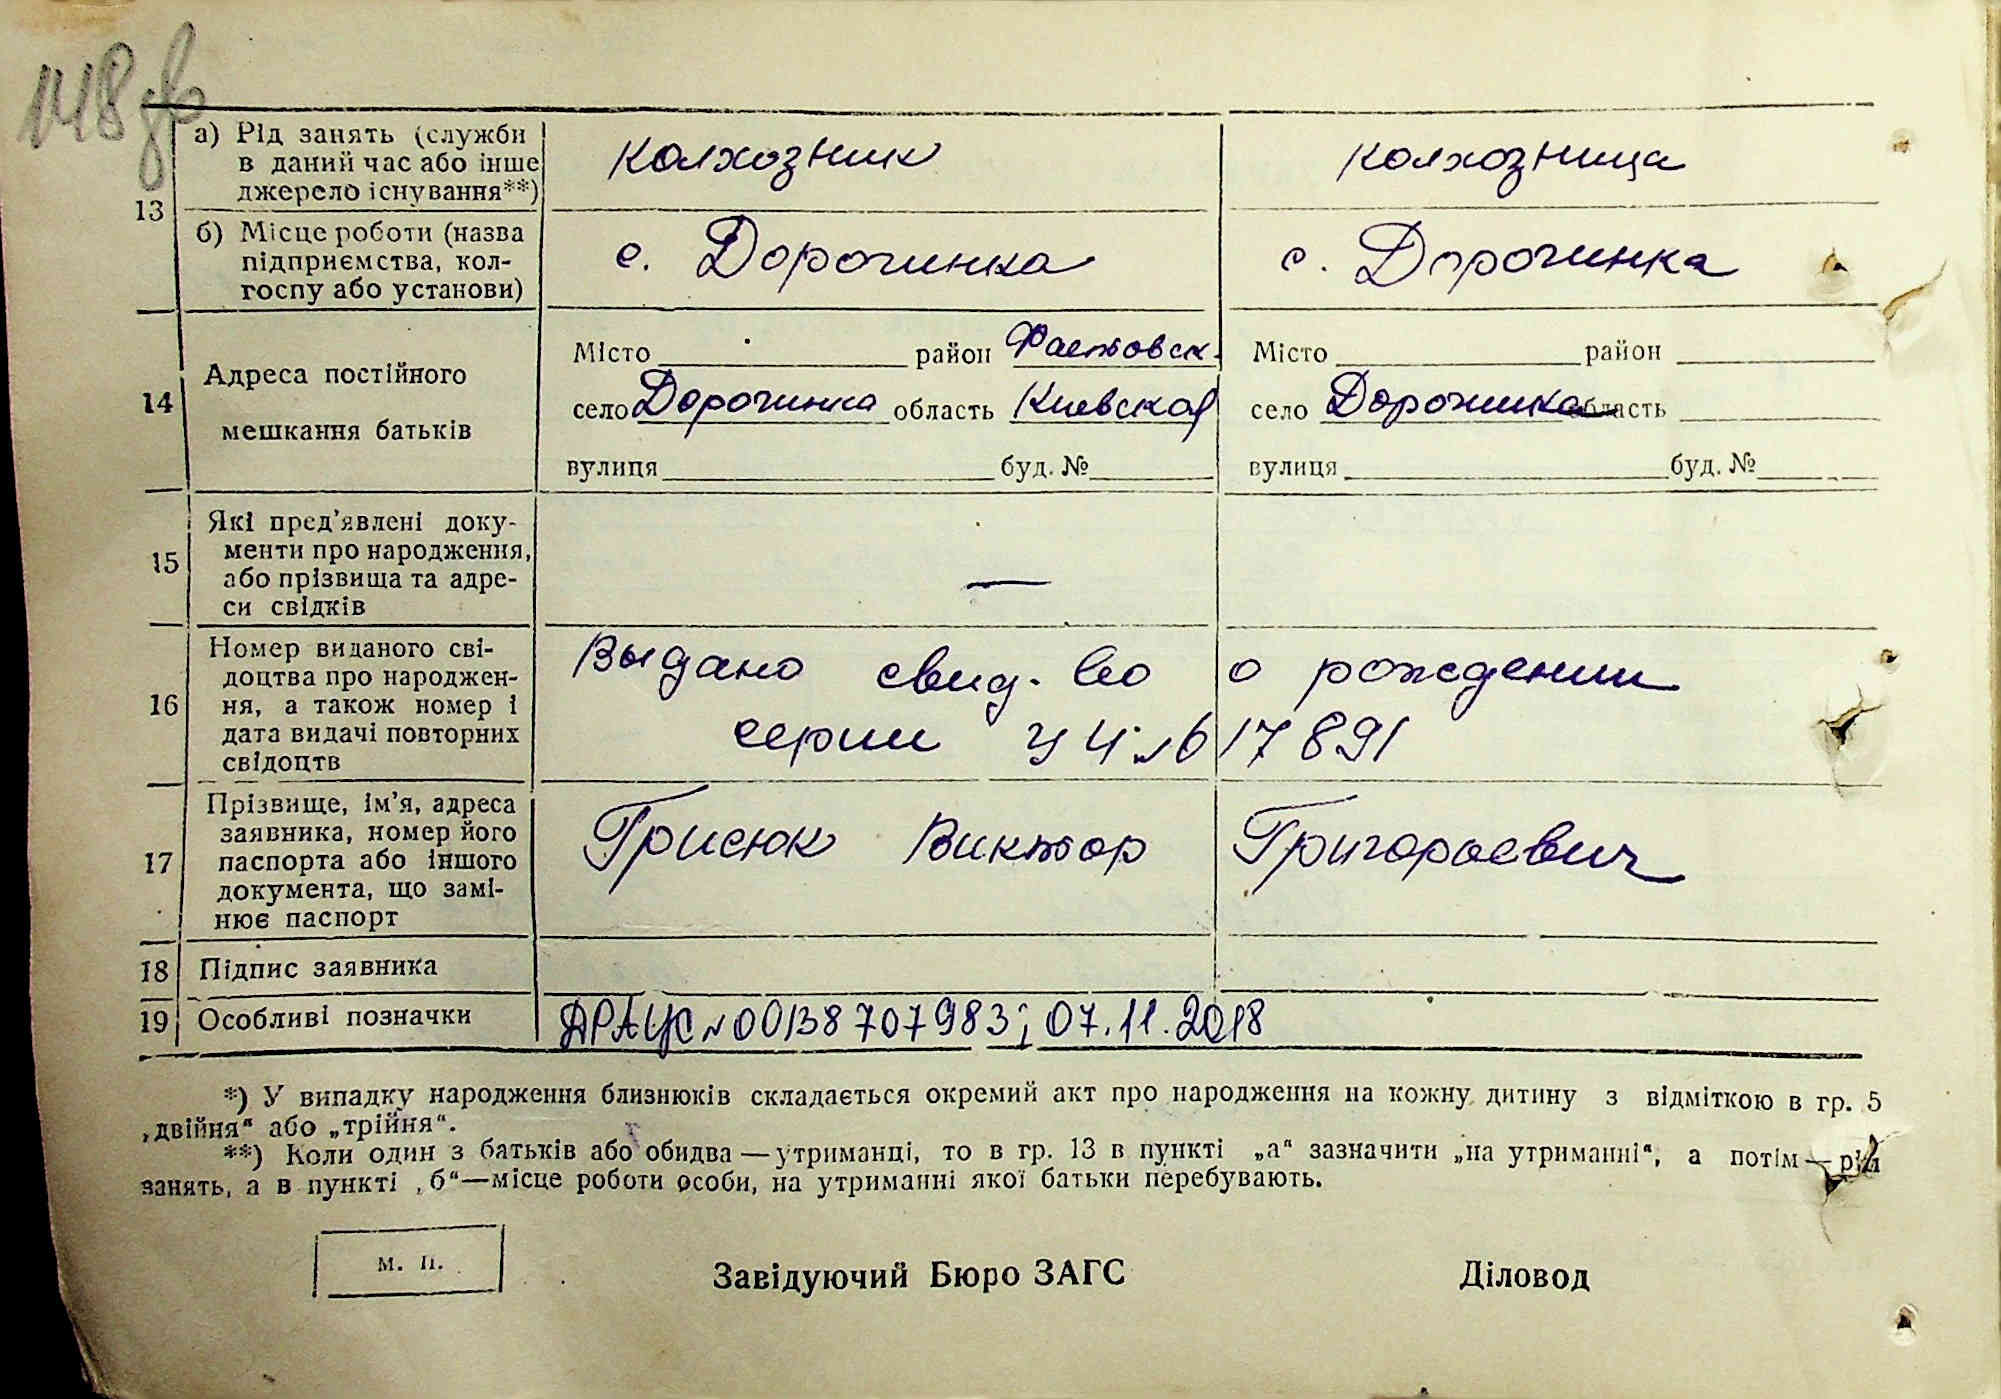 148 зв
13 а) Рід занять (служби в даний час або інше джерело існування**) колхозник колхозница
б) Місце роботи (назва підприємства, колгоспу або установи) с. Дорогинка с. Дорогинка
14 Адреса постійного мешкання батьків
Місто район Фастовск. Місто район
село Дорогинка область Киевская село Дорогинка область
вулиця буд. № вулиця буд. №
15 Які пред'явлені документи про народження, або прізвища та адреси свідків —
16 Номер виданого свідоцтва про народження, а також номер і дата видачі повторних свідоцтв
Выдано свид-во о рождении
серии УЧ № 617891
17 Прізвище, ім'я, адреса заявника, номер його паспорта або іншого документа, що замінює паспорт Грисюк Виктор Григорьевич
18 Підпис заявника
19 Особливі позначки ДРАЦС №00138707983; 07.11.2018
*) У випадку народження близнюків складається окремий акт про народження на кожну дитину з відміткою в гр. 5
„двійня“ або „трійня“.
**) Коли один з батьків або обидва — утриманці, то в гр. 13 в пункті „а“ зазначити „на утриманні“, а потім — рід
занять, а в пункті „б“ — місце роботи особи, на утриманні якої батьки перебувають.
М. П.
Завідуючий Бюро ЗАГС Діловод